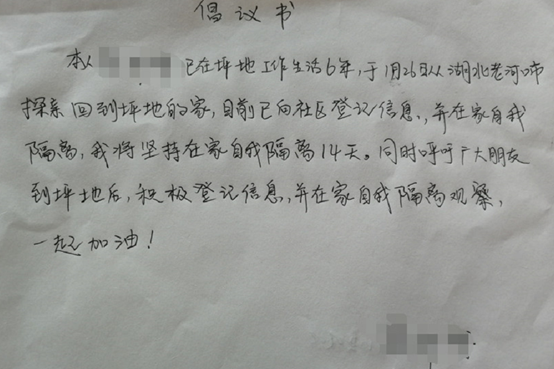 倡议书
本人 已在坪地工作生活6年,于1月26日从湖北老河口市
探亲回到坪地的家,目前已向社区登记信息,并在家自我
隔离,我将坚持在家自我隔离14天。同时呼吁广大朋友
到坪地后,积极登记信息,并在家自我隔离观察,
一起加油!